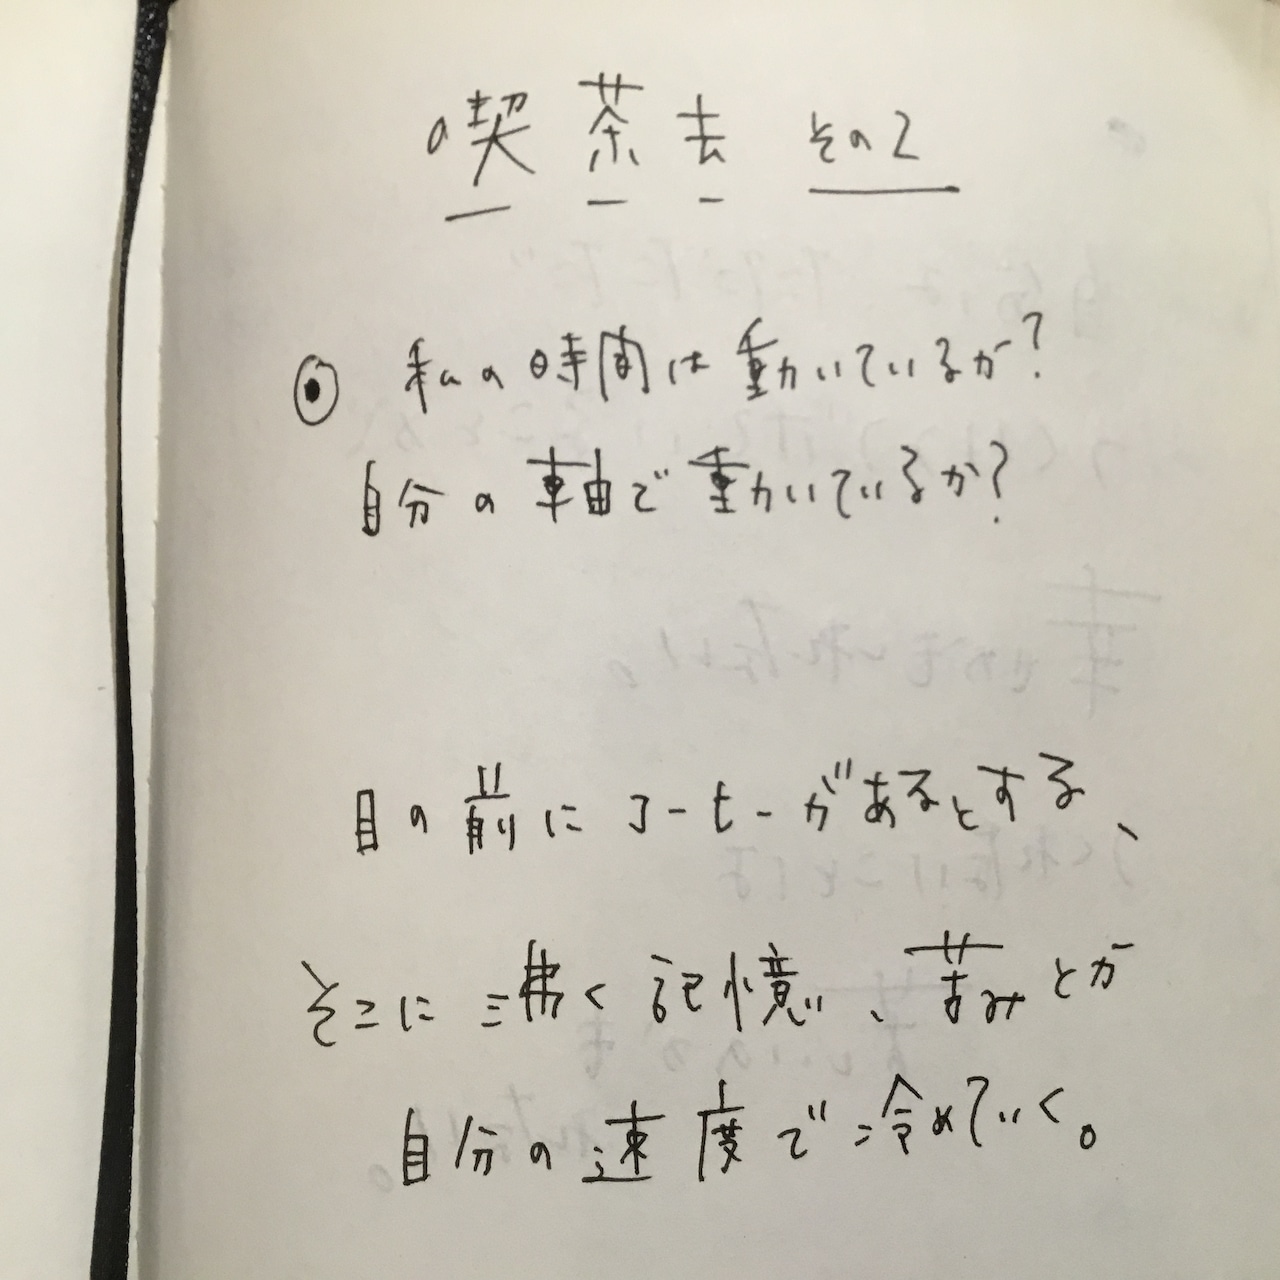 喫茶去 その2
◉ 私の時間は動いているか?
自分の軸で動いているか?
目の前にコーヒーがあるとする、
そこに沸く記憶、苦みとか
自分の速度で冷めていく。